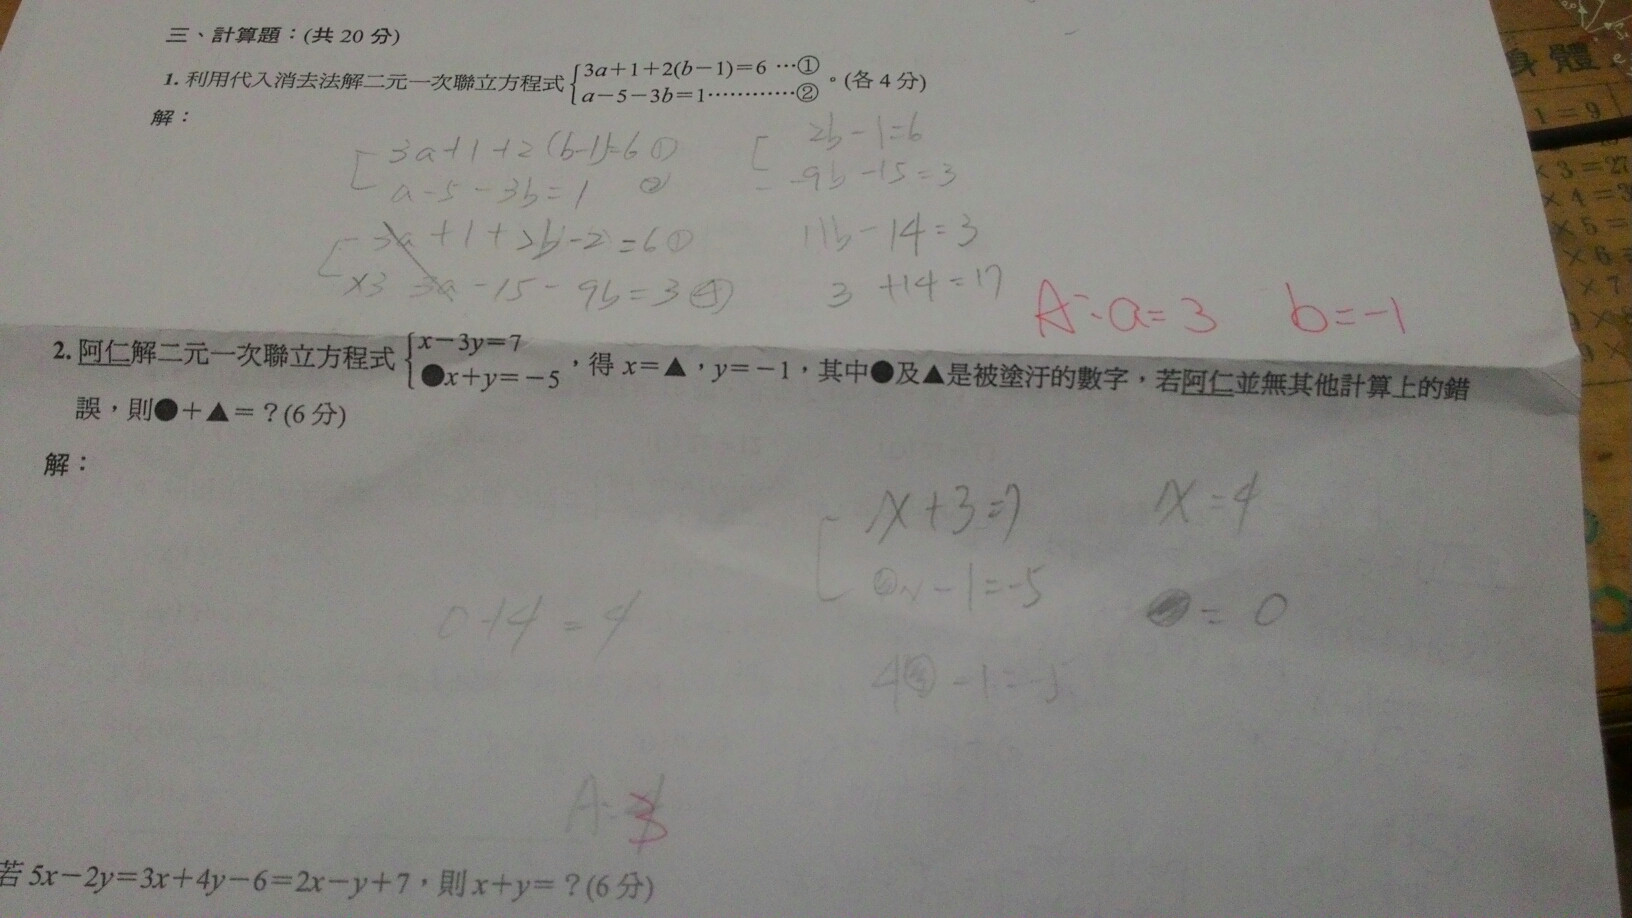 三、計算題：(共 20 分)
1. 利用代入消去法解二元一次聯立方程式 { 3a＋1＋2(b－1)＝6 …① 。(各 4 分)
a－5－3b＝1…………②
解：
3a+1+2(b-1)=6 ①
a-5-3b=1 ②
3a+1+2b-2=6 ①
×3 3a-15-9b=3 ④
2b-1=6
-9b-15=3
11b-14=3
3 +14=17
A:a=3 b=-1
2. 阿仁解二元一次聯立方程式 { x－3y＝7
●x＋y＝－5 ，得 x＝▲，y＝－1，其中●及▲是被塗汙的數字，若阿仁並無其他計算上的錯
誤，則●＋▲＝？(6 分)
解：
x+3=7 x=4
-1=-5 ●=0
4 -1=-5
0+4=4
A:3
若 5x－2y＝3x＋4y－6＝2x－y＋7，則 x＋y＝？(6 分)
身體
1=9
×3=27
×4=3
×5=
×6=
×7